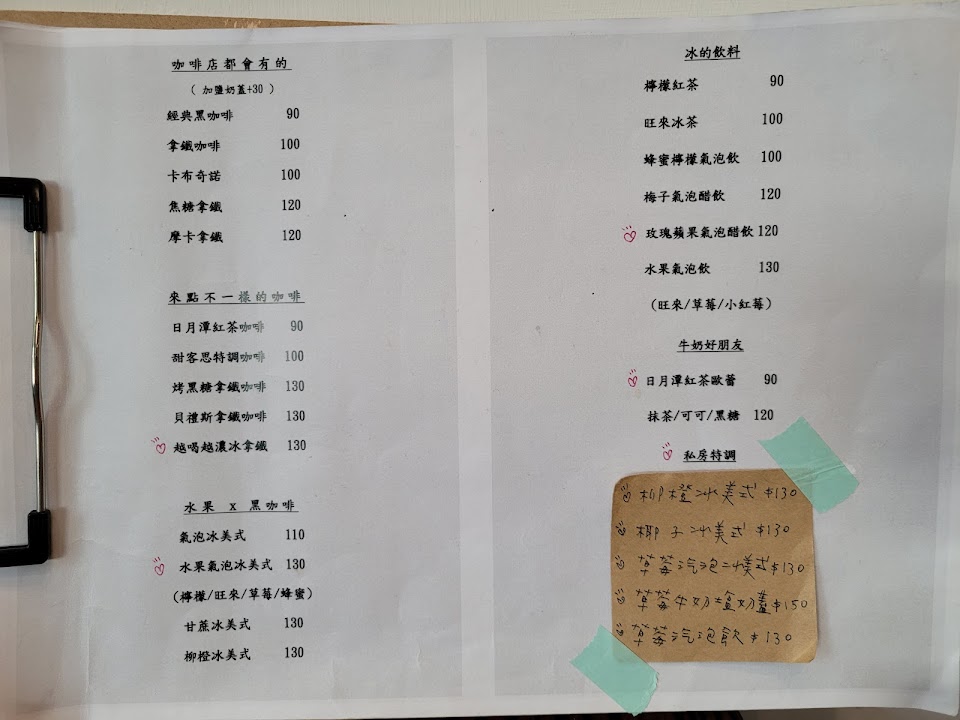 咖啡店都會有的
(加鹽奶蓋+30)
經典黑咖啡 90
拿鐵咖啡 100
卡布奇諾 100
焦糖拿鐵 120
摩卡拿鐵 120
來點不一樣的咖啡
日月潭紅茶咖啡 90
甜客思特調咖啡 100
烤黑糖拿鐵咖啡 130
貝禮斯拿鐵咖啡 130
越喝越濃冰拿鐵 130
水果 x 黑咖啡
氣泡冰美式 110
水果氣泡冰美式 130
(檸檬/旺來/草莓/蜂蜜)
甘蔗冰美式 130
柳橙冰美式 130
冰的飲料
檸檬紅茶 90
旺來冰茶 100
蜂蜜檸檬氣泡飲 100
梅子氣泡醋飲 120
玫瑰蘋果氣泡醋飲 120
水果氣泡飲 130
(旺來/草莓/小紅莓)
牛奶好朋友
日月潭紅茶歐蕾 90
抹茶/可可/黑糖 120
私房特調
柳橙冰美式 $130
椰子冰美式 $130
草莓汽泡冰美式 $130
草莓牛奶塩奶蓋 $150
草莓汽泡飲 $130